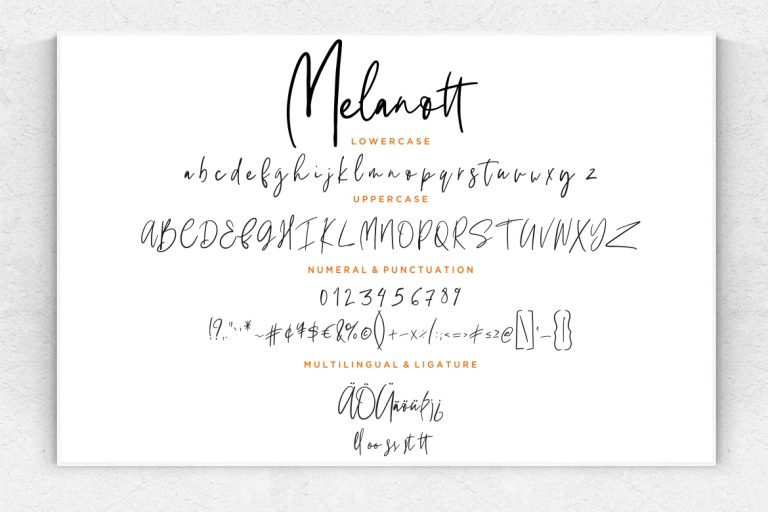 Melanott
LOWERCASE
abcdefghijklmnopqrstuvwxyz
UPPERCASE
ABCDEFGHIJKLMNOPQRSTUVWXYZ
NUMERAL & PUNCTUATION
0123456789
MULTILINGUAL & LIGATURE
ll oo ss st tt